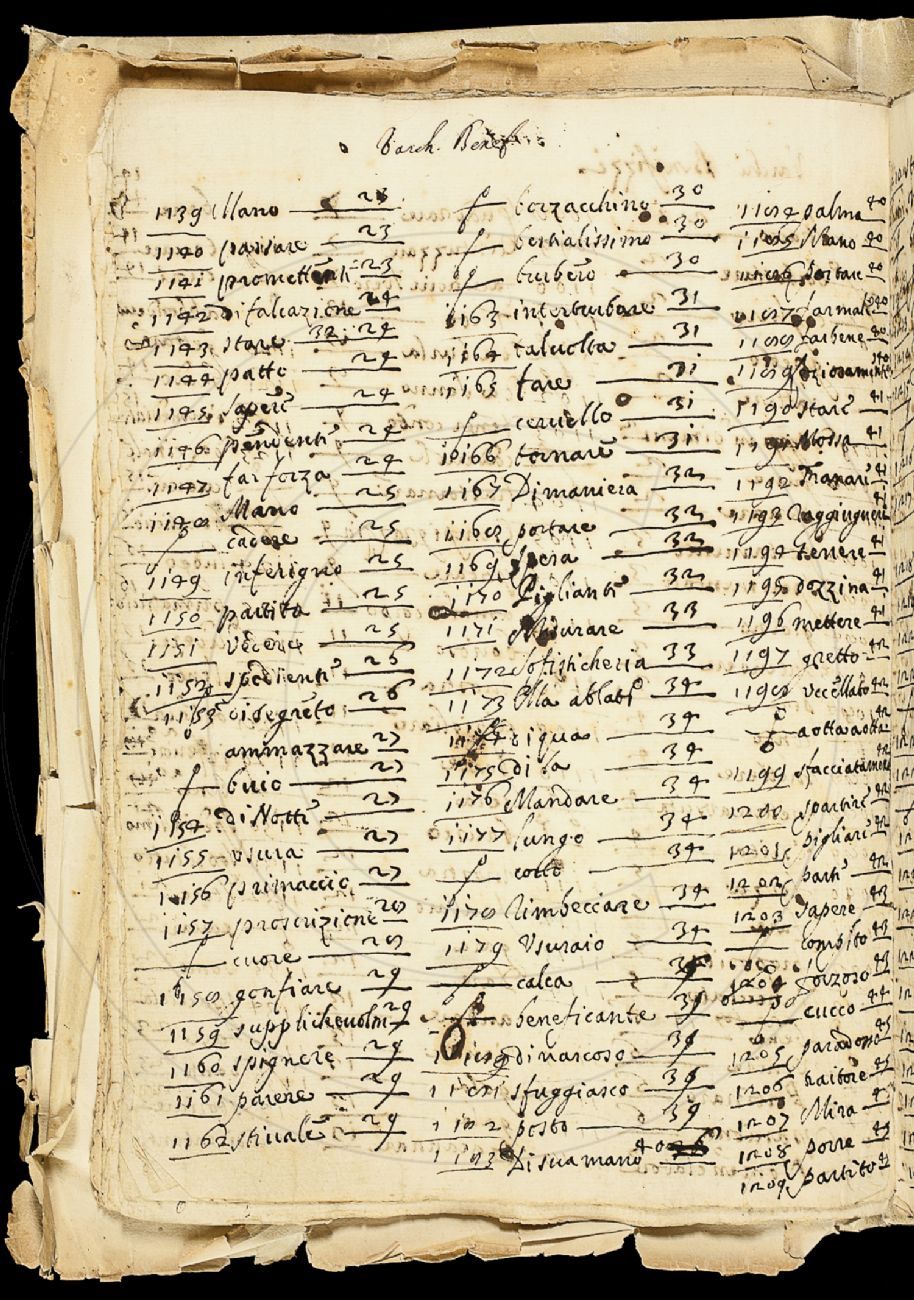 Varch. Benef.
1139 Mano 23
1140 passare 23
1141 promettenti 23
1142 Difalcazione 24
1143 stare 32, 24
1144 patto 24
1145 sapere 24
1146 pendenti 24
1147 far forza 24
1148 Mano 25
cadere 25
1149 inferigno 25
1150 partito 25
1151 vedere 25
1152 spedienti 25
1153 di segreto 26
ammazzare 27
buio 27
1154 di Notte 27
1155 vsura 27
1156 primaccio 27
1157 proscrizione 28
cuore 28
1158 gonfiare 29
1159 supplichevolm 29
1160 spignere 29
1161 parere 29
1162 stivale 29
borzacchino 30
bestialissimo 30
burbero 30
1163 interturbare 31
1164 talvolta 31
1165 fare 31
cervello 31
1166 tornare 31
1167 Di maniera 32
1168 portare 32
1169 spera 32
1170 Piglianti 32
1171 Misurare 33
1172 Sofisticheria 33
1173 Ella ablat 34
1174 di qua 34
1175 di la 34
1176 Mandare 34
1177 lungo 34
cotto 34
1178 Rimbeccare 34
1179 Vsuraio 34
calca
beneficante 39
1180 di nascoso 39
1181 sfuggiasco 39
1182 posto 39
1183 Di sua mano 40
1184 palma 40
1185 Mano 40
1186 portare 40
1187 farmale 40
1188 farbene 40
1189 oziosamente 40
1190 stare 41
1191 Mossa 41
1192 41
1193 Raggiugnere 41
1194 tenere 41
1195 dozzina 41
1196 mettere 41
1197 gretto 42
1198 vccellato 42
a otta a otta 42
1199 sfacciatamente 42
1200 spartire 42
1201 pigliare 42
1202 parti 42
1203 sapere 43
43
1204 gozzoso 43
cucco 44
1205 paradosso 45
1206 traditore 45
1207 Mira
1208 porre
1209 partito